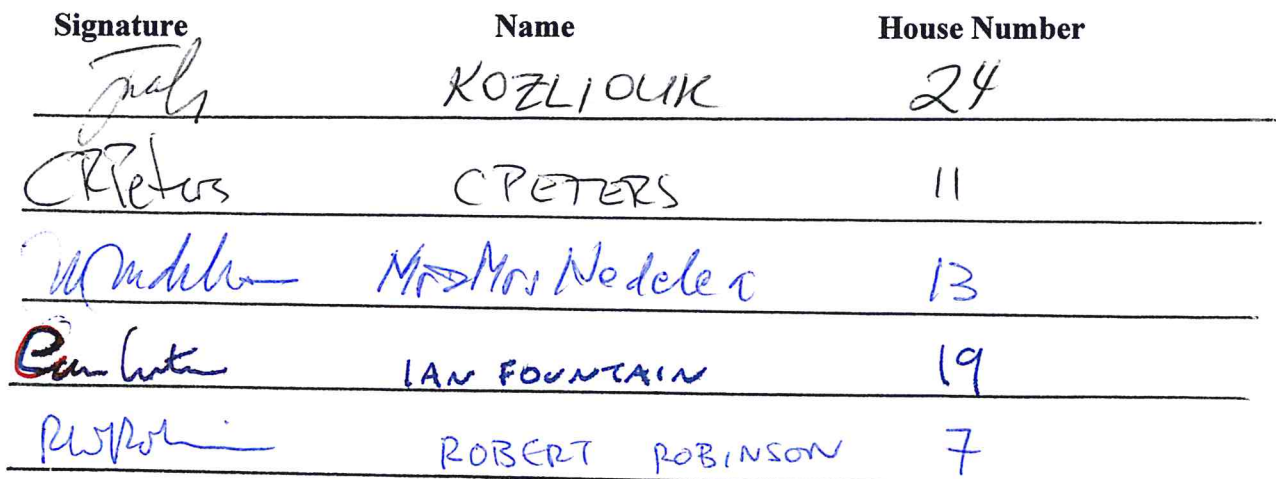 Signature Name House Number
KOZLIOUK 24
CRPeters C PETERS 11
Mr Mrs 13
IAN FOUNTAIN 19
ROBERT ROBINSON 7